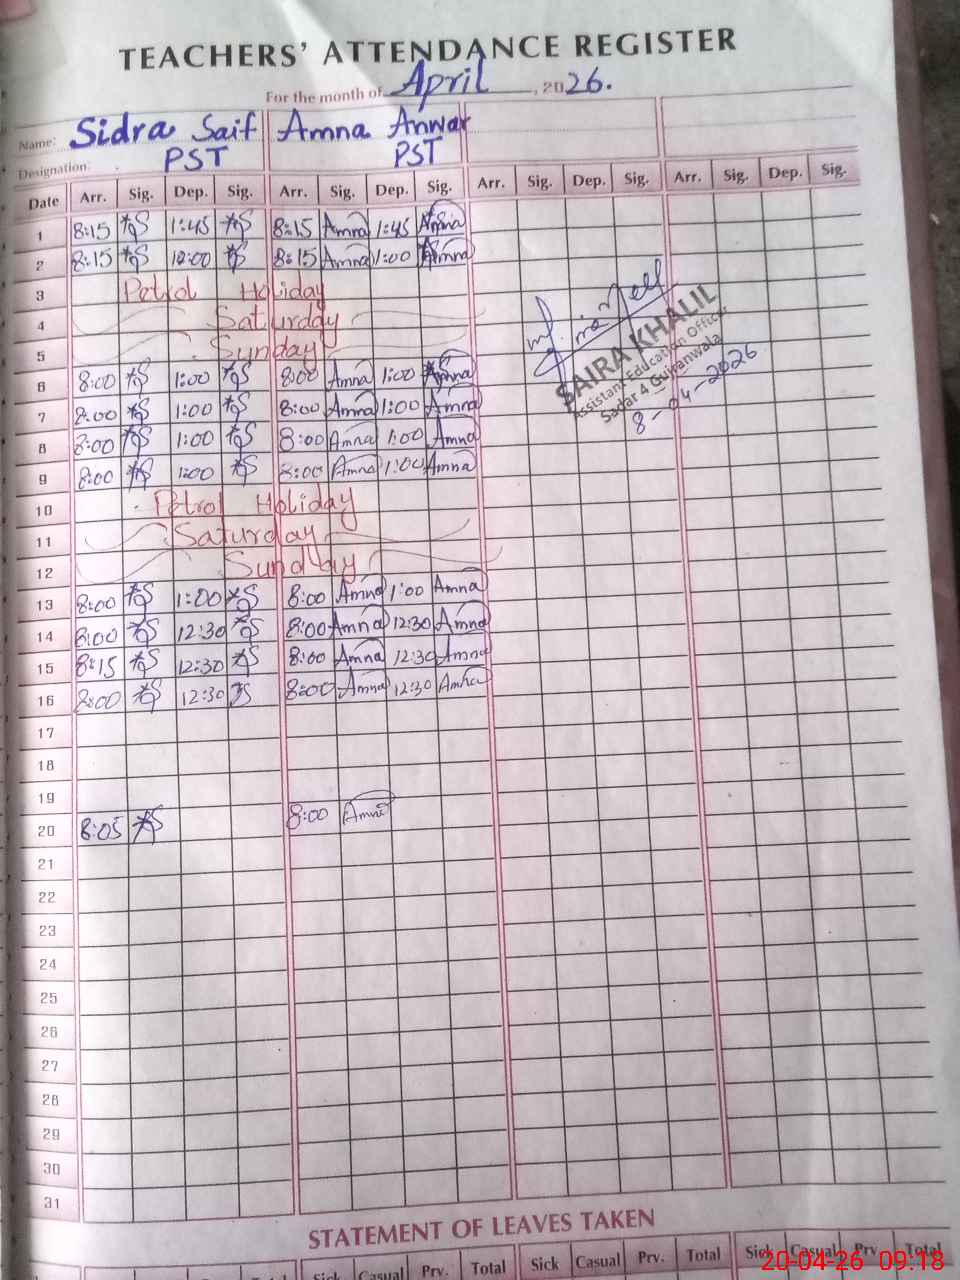 TEACHERS' ATTENDANCE REGISTER
For the month of April, 2026.
Name: Sidra Saif Amna Anwar
Designation: PST PST
Date Arr. Sig. Dep. Sig. Arr. Sig. Dep. Sig. Arr. Sig. Dep. Sig. Arr. Sig. Dep. Sig.
1 8:15 1:45 8:15 Amna 1:45 Amna
2 8:15 12:00 8:15 Amna 1:00 Amna
3 Petrol Holiday
4 Saturday
5 Sunday
6 8:00 1:00 8:00 Amna 1:00 Amna
7 8:00 1:00 8:00 Amna 1:00 Amna
8 8:00 1:00 8:00 Amna 1:00 Amna
9 8:00 1:00 8:00 Amna 1:00 Amna
SAIRA KHALIL
Assistant Education Officer
Sadar 4 Gujranwala
8-04-2026
10 Petrol Holiday
11 Saturday
12 Sunday
13 8:00 1:00 8:00 Amna 1:00 Amna
14 8:00 12:30 8:00 Amna 12:30 Amna
15 8:15 12:30 8:00 Amna 12:30 Amna
16 8:00 12:30 8:00 Amna 12:30 Amna
17
18
19
20 8:05 8:00 Amna
21
22
23
24
25
26
27
28
29
30
31
STATEMENT OF LEAVES TAKEN
Total Sick Casual Prv. Total Sick Casual Prv. Total Sick Casual Prv. Total
20-04-26 09:18